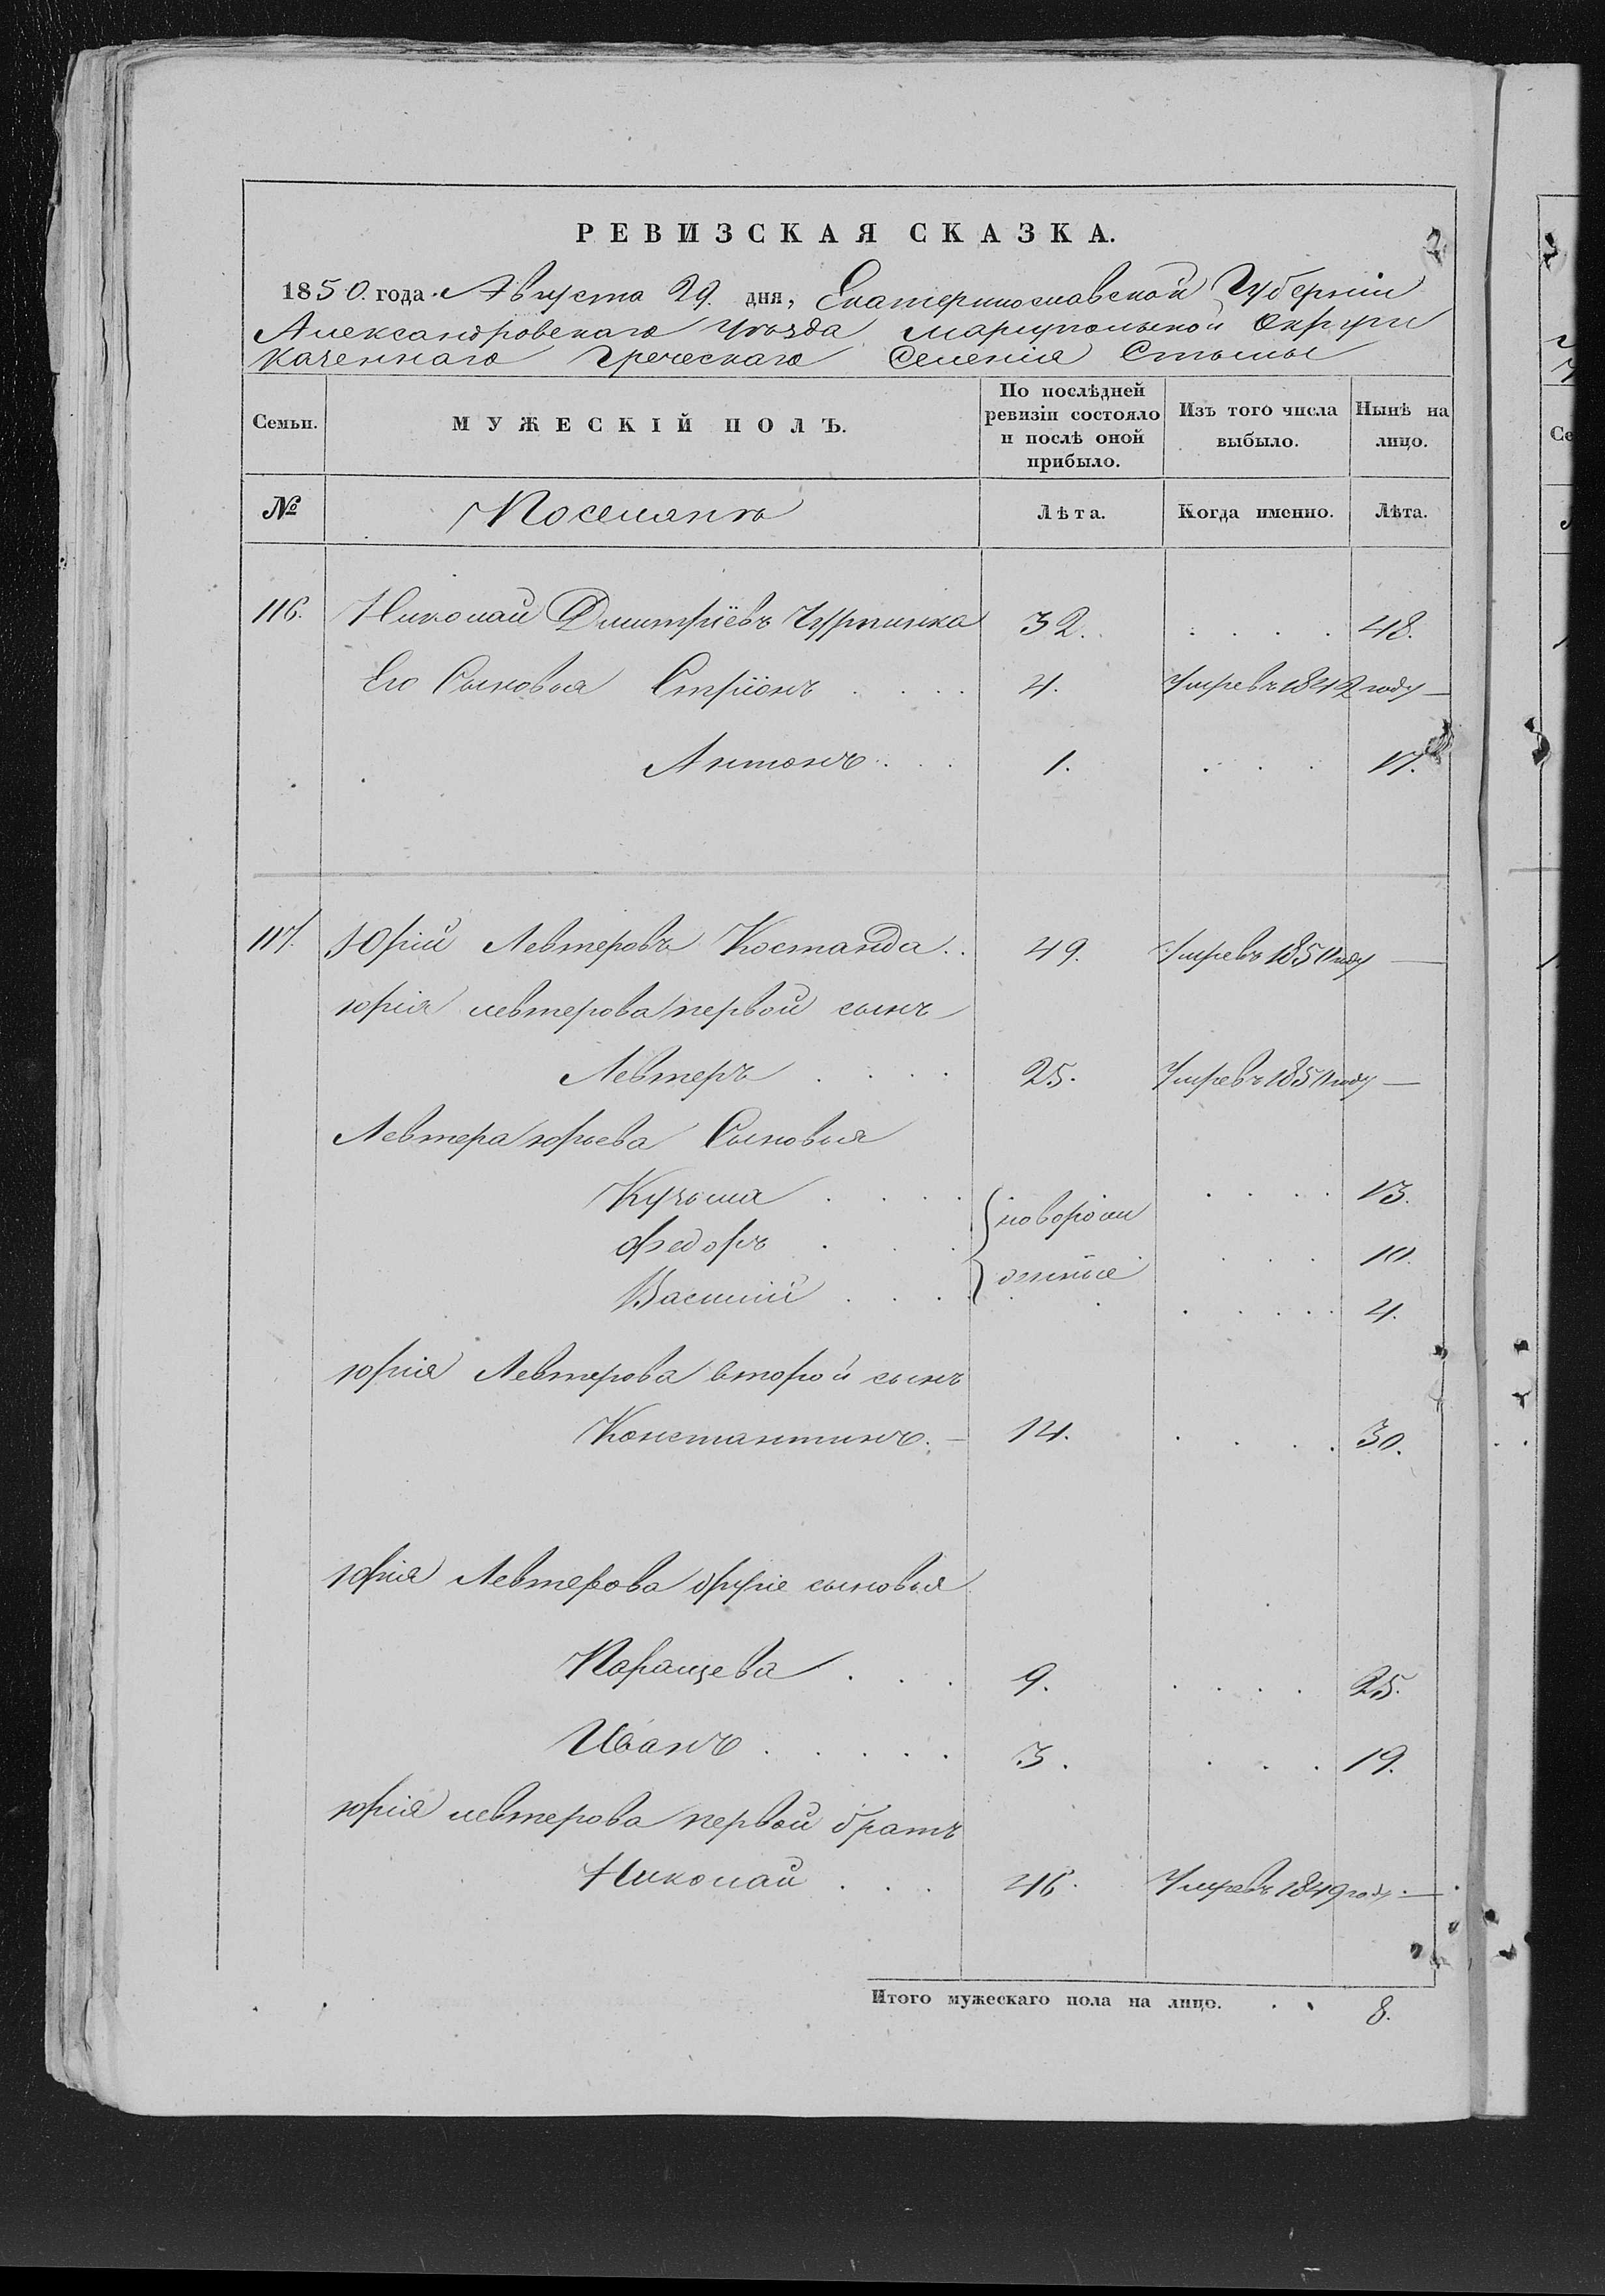 РЕВИЗСКАЯ СКАЗКА.
1850. года Августа 29. дня, Екатеринославской Губерніи
Александровскаго Уѣзда Маріупольской Округи
Казеннаго Греческаго Селенія Стылы
Семьи.
МУЖЕСКІЙ ПОЛЪ.
По послѣдней ревизіи состояло и послѣ оной прибыло.
Изъ того числа выбыло.
Нынѣ на лицо.
№ Поселянъ Лѣта. Когда именно. Лѣта.
116. Николай Дмитріевъ Чурпинка 32. 48.
Его Сыновья Стріонъ 4. Умре въ 1842 году —
Антонъ 1. 17.
117. Юрій Левтеровъ Костанда 49. Умре въ 1850 году —
юрія левтерова первой сынъ
Левтеръ 25. Умре въ 1850 году —
Левтера юрьева Сыновья
Кузьма новорож 13.
Федоръ денные 10.
Василій 4.
юрія Левтерова второй сынъ
Константинъ. — 14. 30.
юрія Левтерова другіе сыновья
Паращева 9. 25.
Иванъ 3. 19.
юрія левтерова первой братъ
Николай 46. Умре въ 1849 году —
Итого мужескаго пола на лицо. 8.